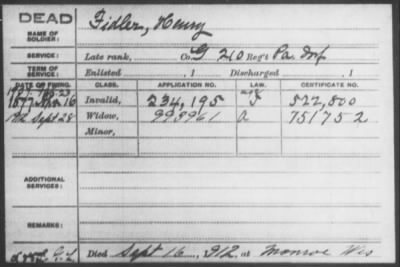 DEAD
NAME OF SOLDIER:
Fidler, Henry
SERVICE:
Late rank, Co. G 210 Reg't Pa Inf
TERM OF SERVICE:
Enlisted , 1 Discharged , 1
DATE OF FILING. CLASS. APPLICATION NO. LAW. CERTIFICATE NO.
1877 Apr 16 Invalid, 234,195 522,800
1912 Sept 28 Widow, 999961 a 751752
Minor,
ADDITIONAL SERVICES:
REMARKS:
Died Sept 16, 1912 at Monroe Wis